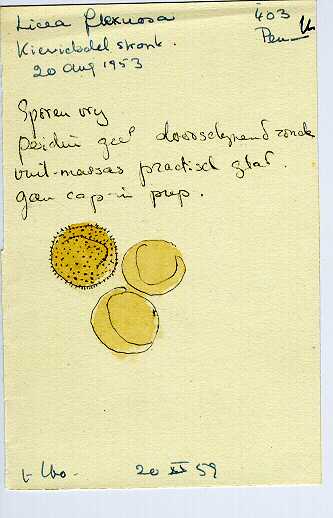 Licea flexuosa 403
Kievitsdel stronk. Pen
20 aug 1953
Sporen vry
peridie geel doorschynend zonder
vuil-massas practisch glad.
geen cap-in prep.
20 XI 59